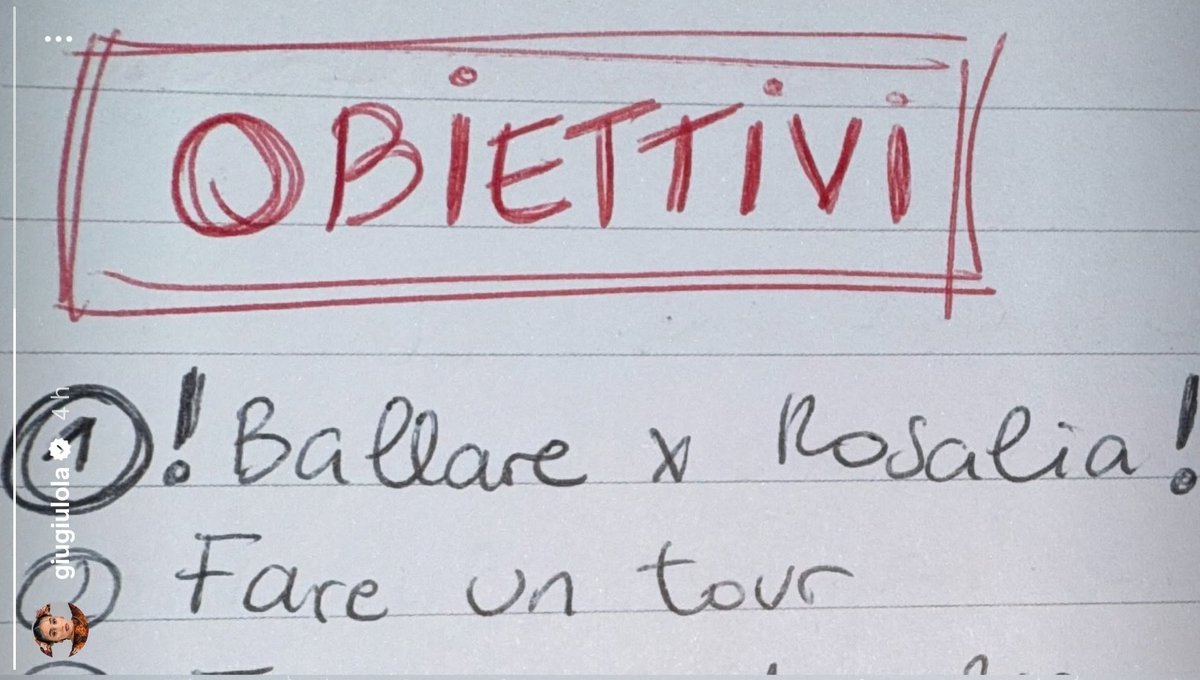 OBIETTIVI
1 ! Ballare x Rosalia!
2 Fare un tour
giugiulola 4 h